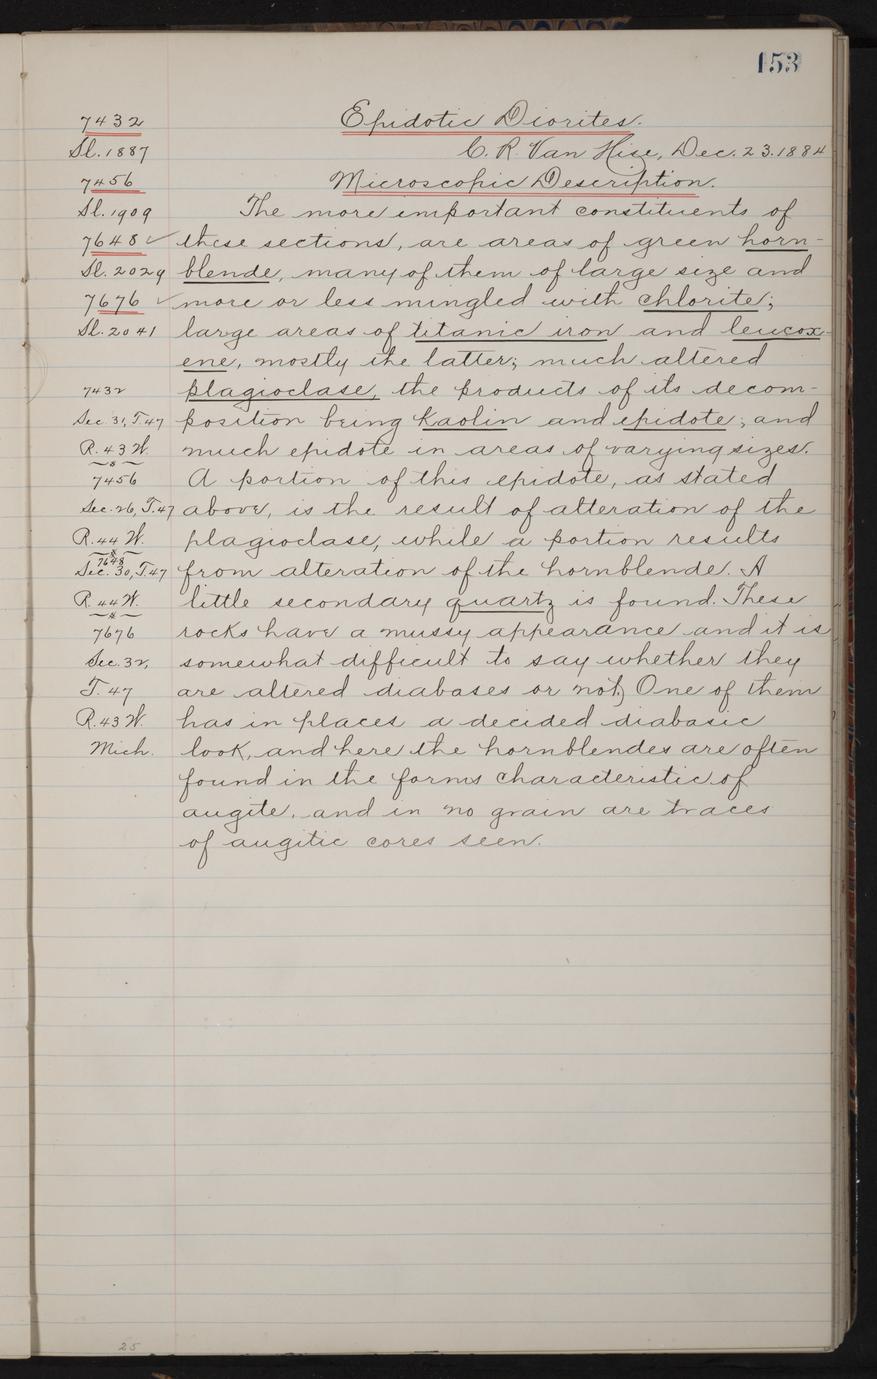 153
7432 Epidotic Diorites.
Sl. 1887 C. R. Van Hise, Dec. 23. 1884
7456 Microscopic Description.
Sl. 1909 The more important constituents of
7648 ✓ these sections, are areas of green horn-
Sl. 2029 blende, many of them of large size and
7676 ✓ more or less mingled with chlorite;
Sl. 2041 large areas of titanic iron and leucox-
ene, mostly the latter; much altered
7432 plagioclase, the products of its decom-
Sec. 31, T. 47 position being kaolin and epidote; and
R. 43 W. much epidote in areas of varying sizes.
7456 A portion of this epidote, as stated
Sec. 26, T. 47 above, is the result of alteration of the
R. 44 W. plagioclase, while a portion results
7648
Sec. 30, T. 47 from alteration of the hornblende. A
R. 44 W. little secondary quartz is found. These
7676 rocks have a mussy appearance and it is
Sec. 32, somewhat difficult to say whether they
T. 47 are altered diabases or not.) One of them
R. 43 W. has in places a decided diabasic
Mich. look, and here the hornblendes are often
found in the forms characteristic of
augite, and in no grain are traces
of augitic cores seen.
25